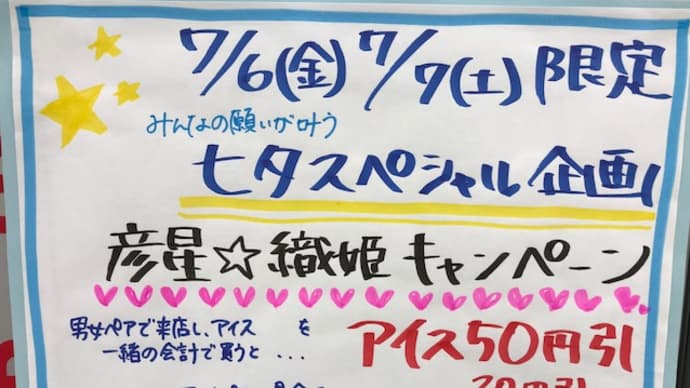 7/6(金)7/7(土)限定
みんなの願いが叶う
七夕スペシャル企画
彦星☆織姫キャンペーン
男女ペアで来店し、アイス を
一緒の会計で買うと...
アイス50円引